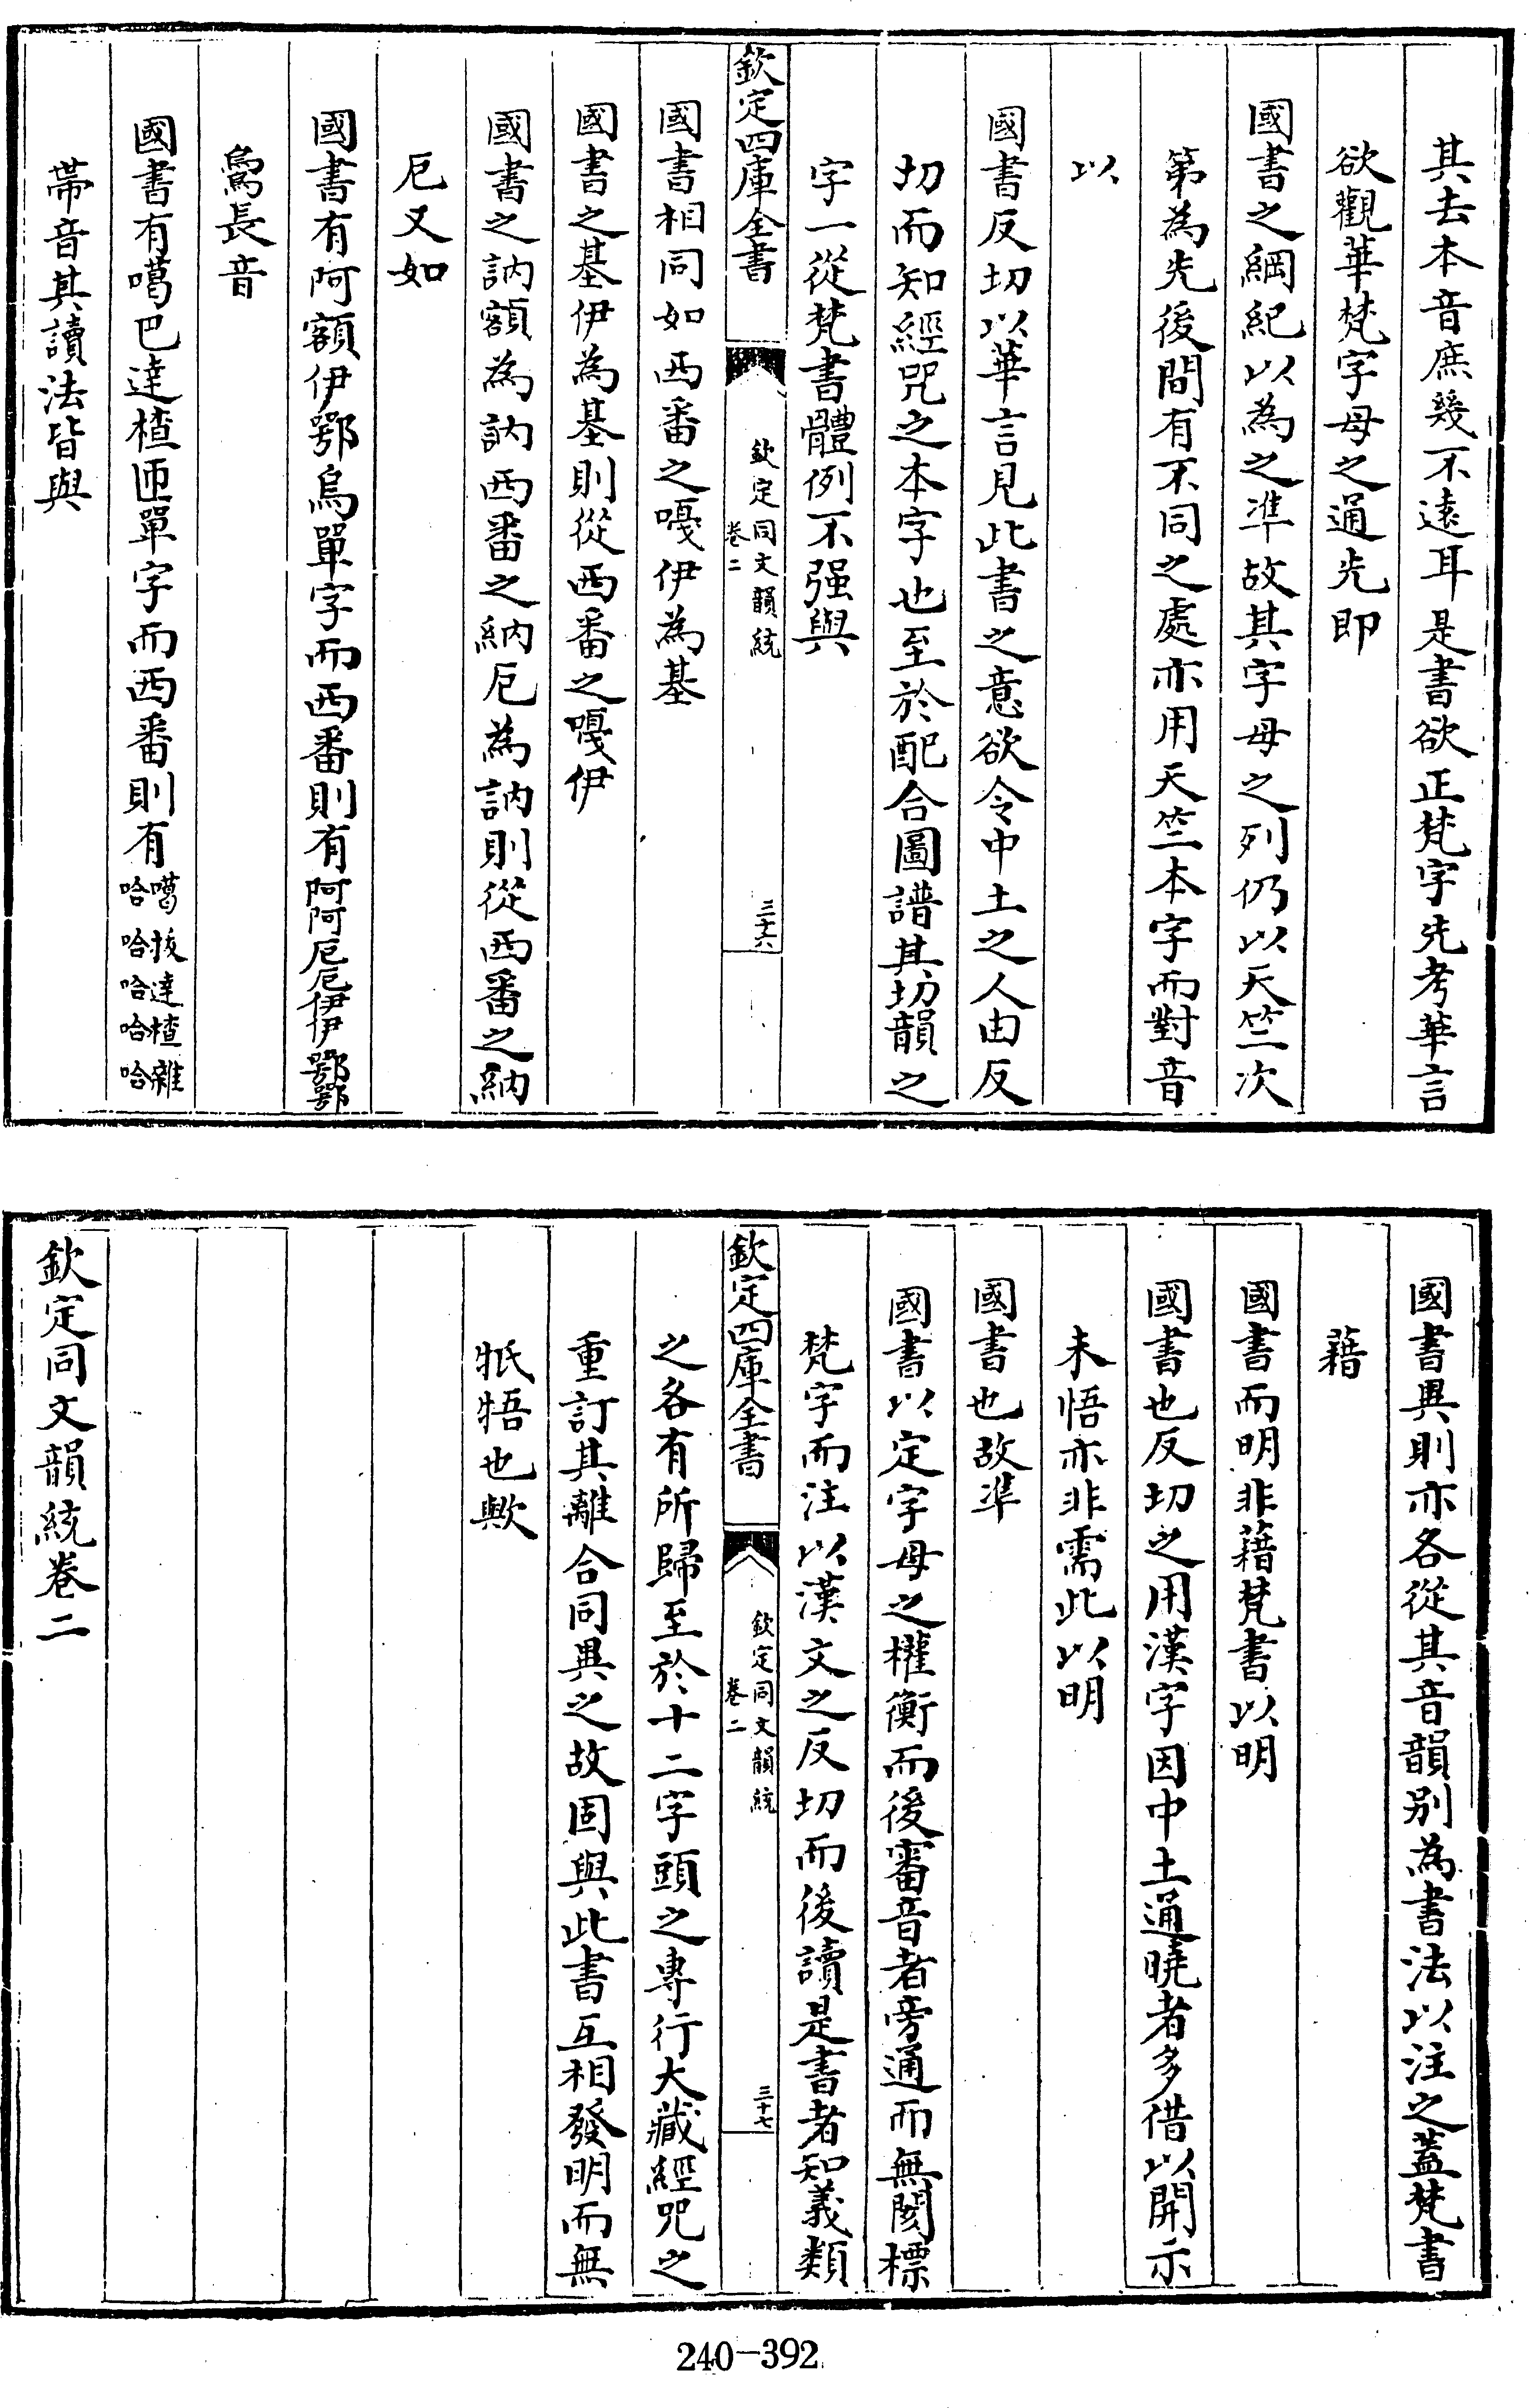 其去本音庶幾不遠耳是書欲正梵字先考華言
欲觀華梵字母之通先即
國書之綱紀以為之準故其字母之列仍以天竺次
第為先後間有不同之處亦用天竺本字而對音
以
國書反切以華言見此書之意欲令中土之人由反
切而知經咒之本字也至於配合圖譜其切韻之
字一從梵書體例不强與
欽定四庫全書
欽定同文韻統
卷二
三十六
國書相同如西番之嘎伊為基
國書之基伊為基則從西番之嘎伊
國書之訥額為訥西番之納厄為訥則從西番之納
厄又如
國書有阿額伊鄂烏單字而西番則有阿阿厄厄伊伊鄂鄂
烏長音
國書有噶巴達楂匝單字而西番則有噶哈拔哈達哈楂哈雜哈
帶音其讀法皆與
國書異則亦各從其音韻别為書法以注之蓋梵書
藉
國書而明非藉梵書以明
國書也反切之用漢字因中土通曉者多借以開示
未悟亦非需此以明
國書也故準
國書以定字母之權衡而後審音者旁通而無閡標
梵字而注以漢文之反切而後讀是書者知義類
欽定四庫全書
欽定同文韻統
卷二
三十七
之各有所歸至於十二字頭之專行大藏經咒之
重訂其離合同異之故固與此書互相發明而無
牴牾也歟
欽定同文韻統卷二
240-392